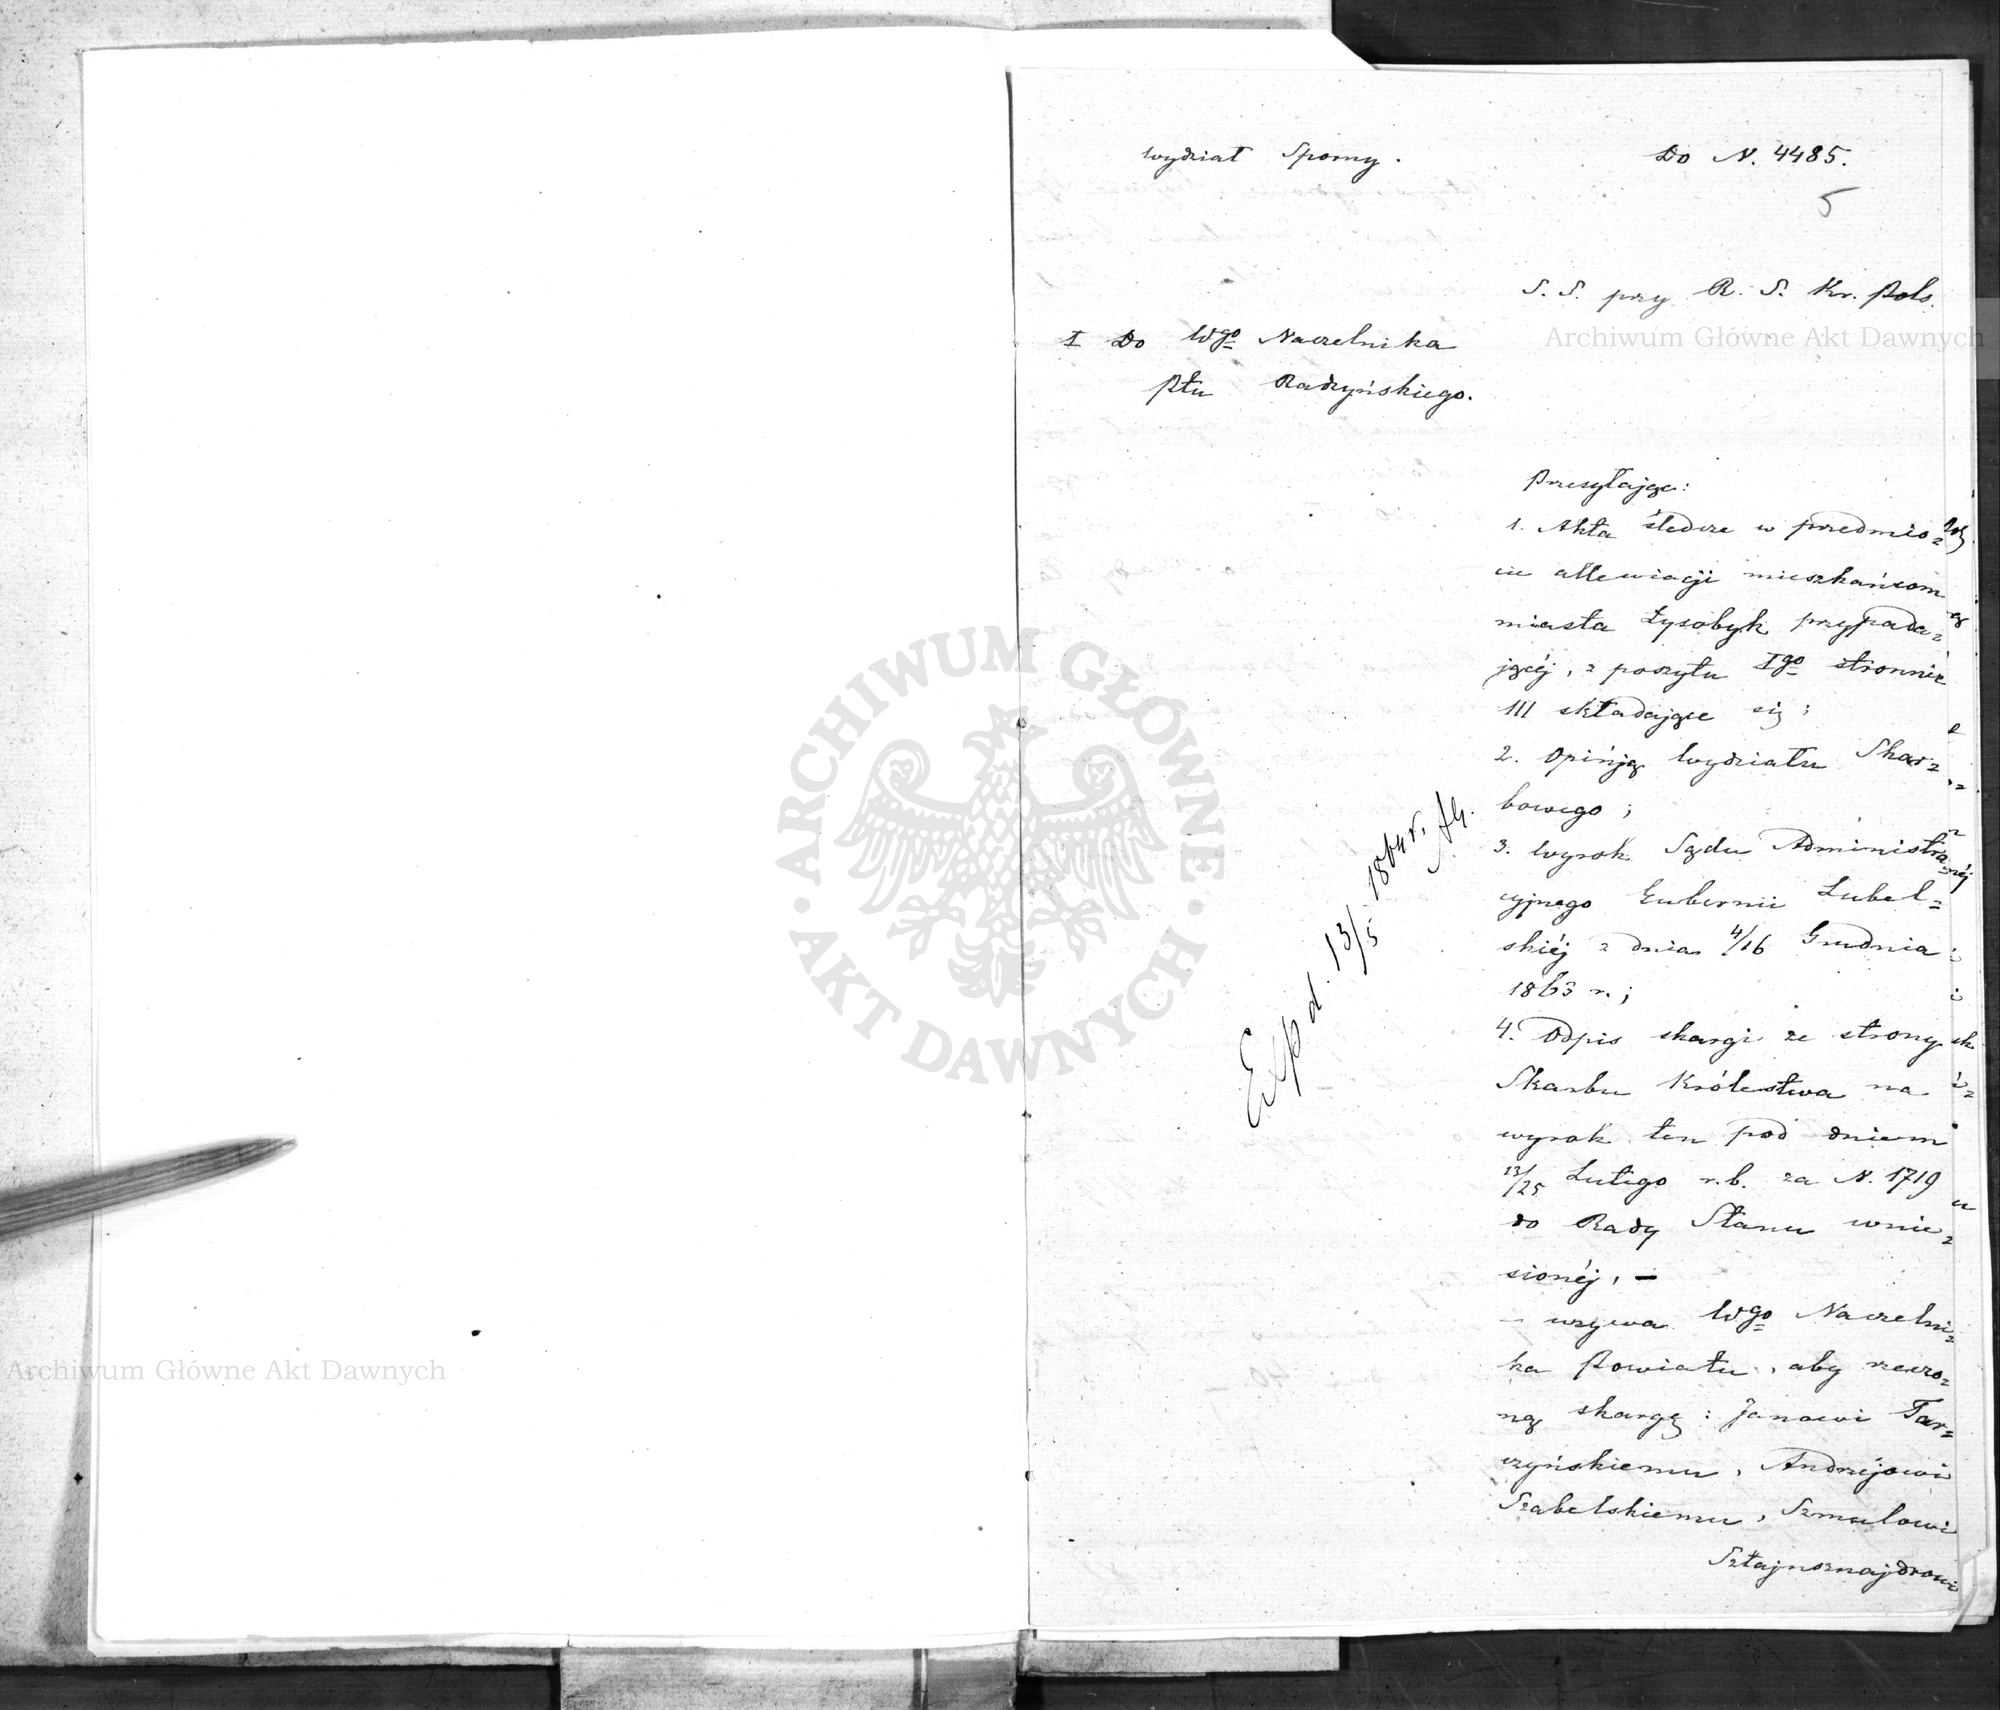 Wydział Sporny. Do N. 4485.
5
S. S. przy R. S. Kr. Pols.
I Do Wgo Naczelnika
Ptu Radzyńskiego.
Przesyłając:
1. Akta śledcze w przedmio=
cie allewiacji mieszkańcom
miasta Łysobyk przypada=
jącéj, z poszytu Igo stronnic
111 składające się;
2. Opinją Wydziału Skar=
bowego;
3. Wyrok Sądu Administra=
cyjnego Gubernii Lubel=
skiéj z dnia 4/16 Grudnia
1863 r.;
4. Odpis skargi ze strony
Skarbu Królestwa na
wyrok ten pod dniem
13/25 Lutego r.b. za N. 1719
do Rady Stanu wnie=
sionéj, —
– wzywa Wgo Naczelni=
ka Powiatu, aby rzeczo=
ną skargę: Janowi Tar=
czyńskiemu, Andrzéjowi
Szabelskiemu, Szmulowi
Sztajnsznajdrowi
Exp d. 13/5 1864 r.
Archiwum Główne Akt Dawnych
Archiwum Główne Akt Dawnych
ARCHIWUM GŁÓWNE
AKT DAWNYCH